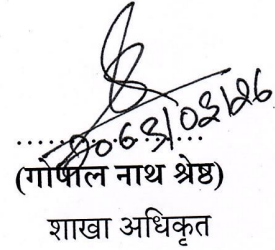 २०६३/०३/२६
(गोपाल नाथ श्रेष्ठ)
शाखा अधिकृत